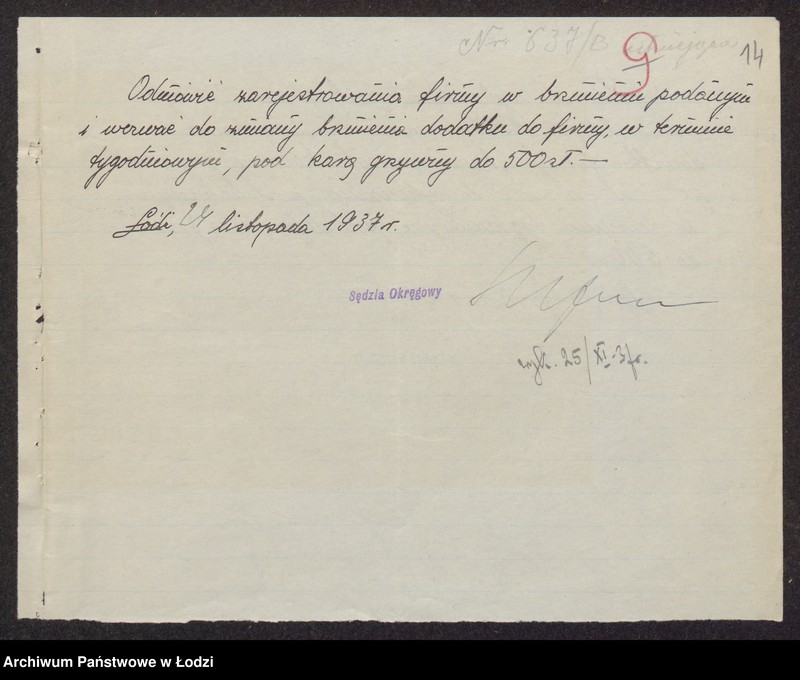 Nr. 637/B
9
14
Odmówić zarejestrowania firmy w brzmieniu podanym
i wezwać do zmiany brzmienia dodatku do firmy, w terminie
tygodniowym, pod karą grzywny do 500 zł. —
Łódź, 24 listopada 1937 r.
Sędzia Okręgowy
wyk. 25/XI.37r.
Archiwum Państwowe w Łodzi